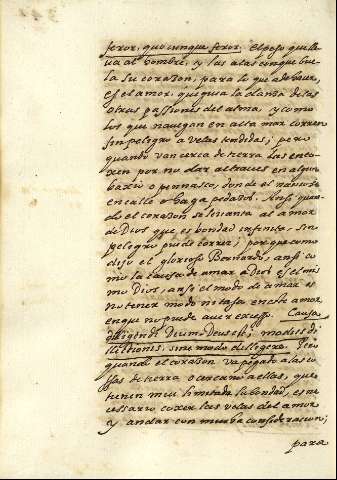 feror, quocunque feror. El peso que lle
va al hombre, y las alas con que bue
la su corazon, para lo que a de hauer,
es el amor, que guia la danza de las
otras passiones del alma, y como
los que nauegan en alta mar corren
sin peligro a velas tendidas; pero
quando van cerca de tierra las enco
xen, por no dar al traves en algun
baxio o peñasco, donde el nauio de
encalle o haga pedazos. Ansi quan
do el corazon se leuanta al amor
de Dios que es bondad infinita, sin
peligro puede correr; porque como
dijo el glorioso Bernardo, ansi co
mo la causa de amar a Dios es el mis
mo Dios, ansi el modo de amar es
no tener modo ni tasa en este amor
en que no puede auer excesso. Causa
diligendi Deum Deus est; modus di
lectionis, sine modo diligere. Pero
quando el corazon va pegado a las co
ssas de tierra o cercano a ellas, que
tienen muy limitada su bondad, es ne
cessario coxer las velas del amor
y andar con mucha consideracion;
para